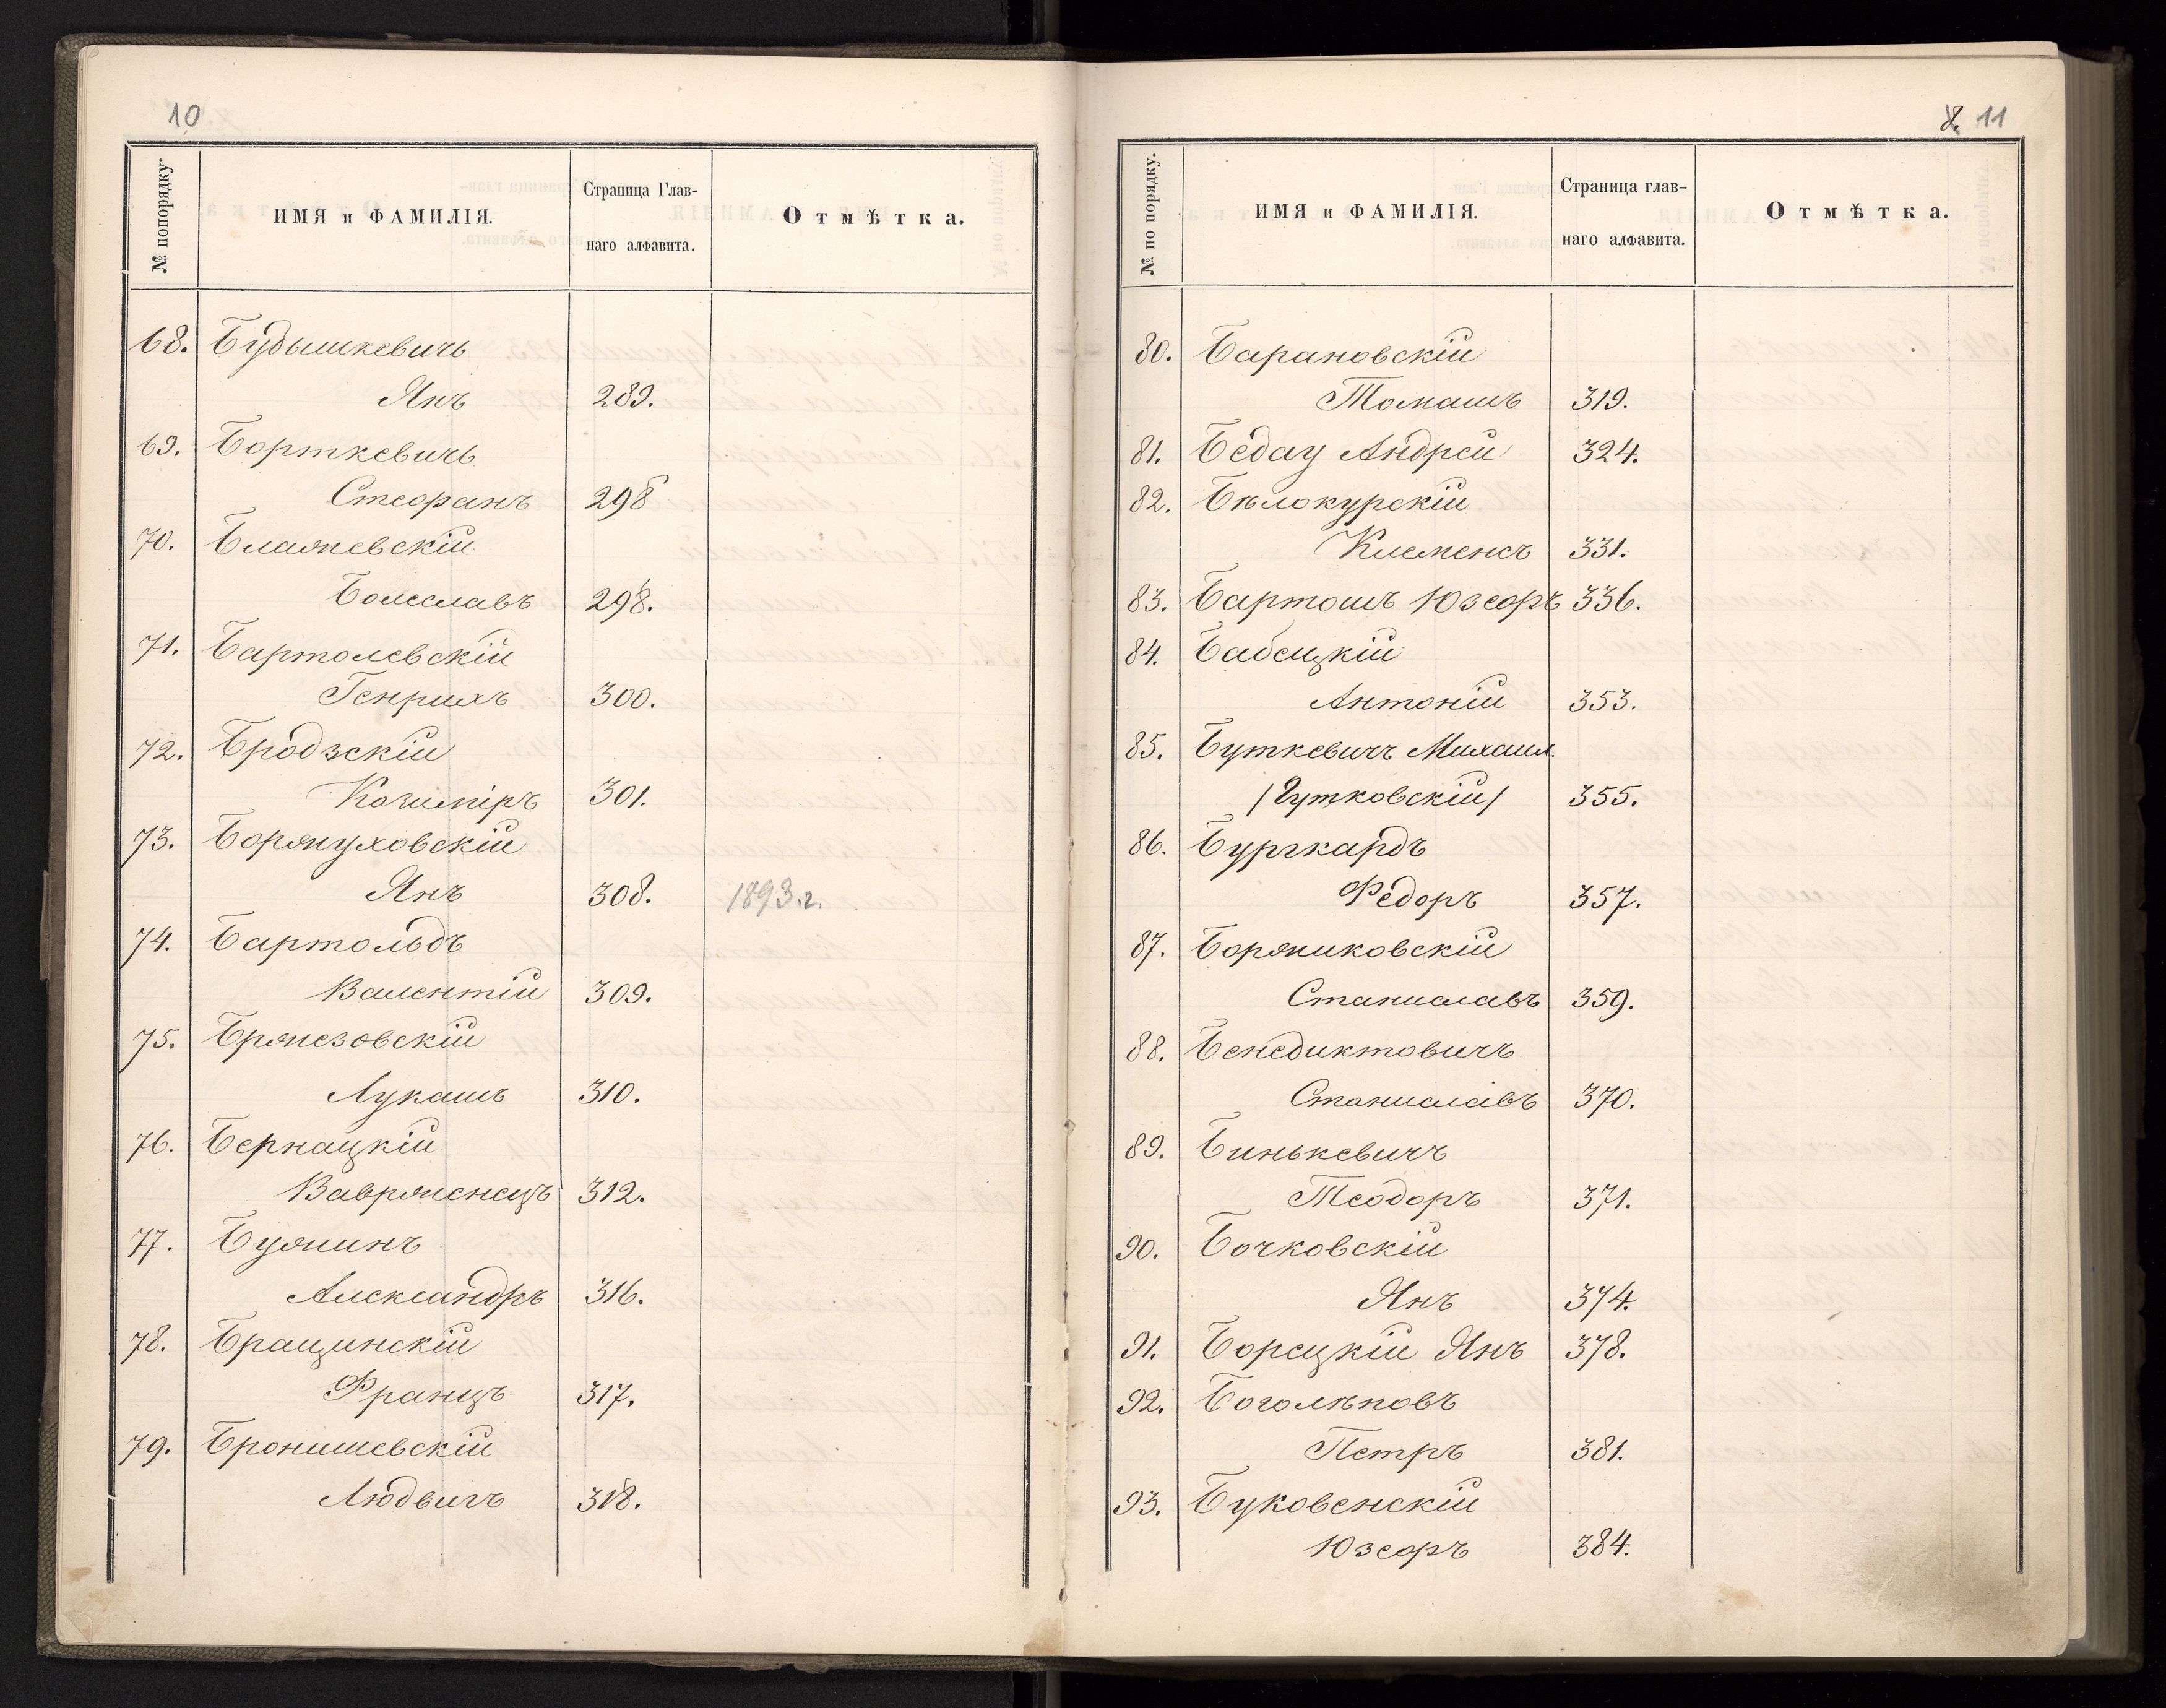 10
№ попорядку.
ИМЯ и ФАМИЛІЯ.
Страница Глав-
наго алфавита.
Отмѣтка.
68. Будышкевичъ
Янъ 289.
69. Борткевичъ
Стефанъ 298
70. Блажевскій
Болеславъ 298.
71. Бартолевскій
Генрихъ 300.
72. Бродзскій
Казимiръ 301.
73. Боржуховскій
Янъ 308. 1893.г.
74. Бартольдъ
Валентій 309.
75. Бржезовскій
Лукашъ 310.
76. Бернацкій
Ваврженецъ 312.
77. Бужинъ
Александръ 316.
78. Бращинскій
Францъ 317.
79. Бронишевскій
Людвигъ 318.
8. 11
№ по порядку.
ИМЯ и ФАМИЛІЯ.
Страница глав-
наго алфавита.
Отмѣтка.
80. Барановскій
Томашъ 319.
81. Бедау Андрей 324.
82. Бѣлокурскій
Клеменсъ 331.
83. Бартошъ Юзефъ 336.
84. Бабецкій
Антоній 353.
85. Буткевичъ Михаил.
/Гутковскій/ 355.
86. Бургкардъ
Федоръ 357.
87. Боржиковскій
Станиславъ 359.
88. Бенедиктовичъ
Станиславъ 370.
89. Бинькевичъ
Теодоръ 371.
90. Бочковскій
Янъ 374.
91. Борецкій Янъ 378.
92. Боголѣповъ
Петръ 381.
93. Буковенскій
Юзефъ 384.